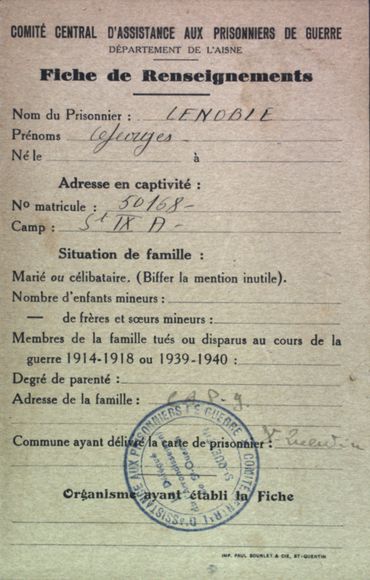 COMITÉ CENTRAL D'ASSISTANCE AUX PRISONNIERS DE GUERRE
DÉPARTEMENT DE L'AISNE
Fiche de Renseignements
Nom du Prisonnier : LENOBLE
Prénoms Georges
Né le à
Adresse en captivité :
No matricule : 50168
Camp : St IX A
Situation de famille :
Marié ou célibataire. (Biffer la mention inutile).
Nombre d'enfants mineurs :
— de frères et sœurs mineurs :
Membres de la famille tués ou disparus au cours de la
guerre 1914-1918 ou 1939-1940 :
Degré de parenté :
Adresse de la famille :
Commune ayant délivré la carte de prisonnier : St Quentin
Organisme ayant établi la Fiche
COMITÉ CENTRAL D'ASSISTANCE AUX PRISONNIERS DE GUERRE
ST-QUENTIN
Délégué
de l'Arrondissement
de St-Quentin
IMP. PAUL BOURLET & CIE, ST-QUENTIN